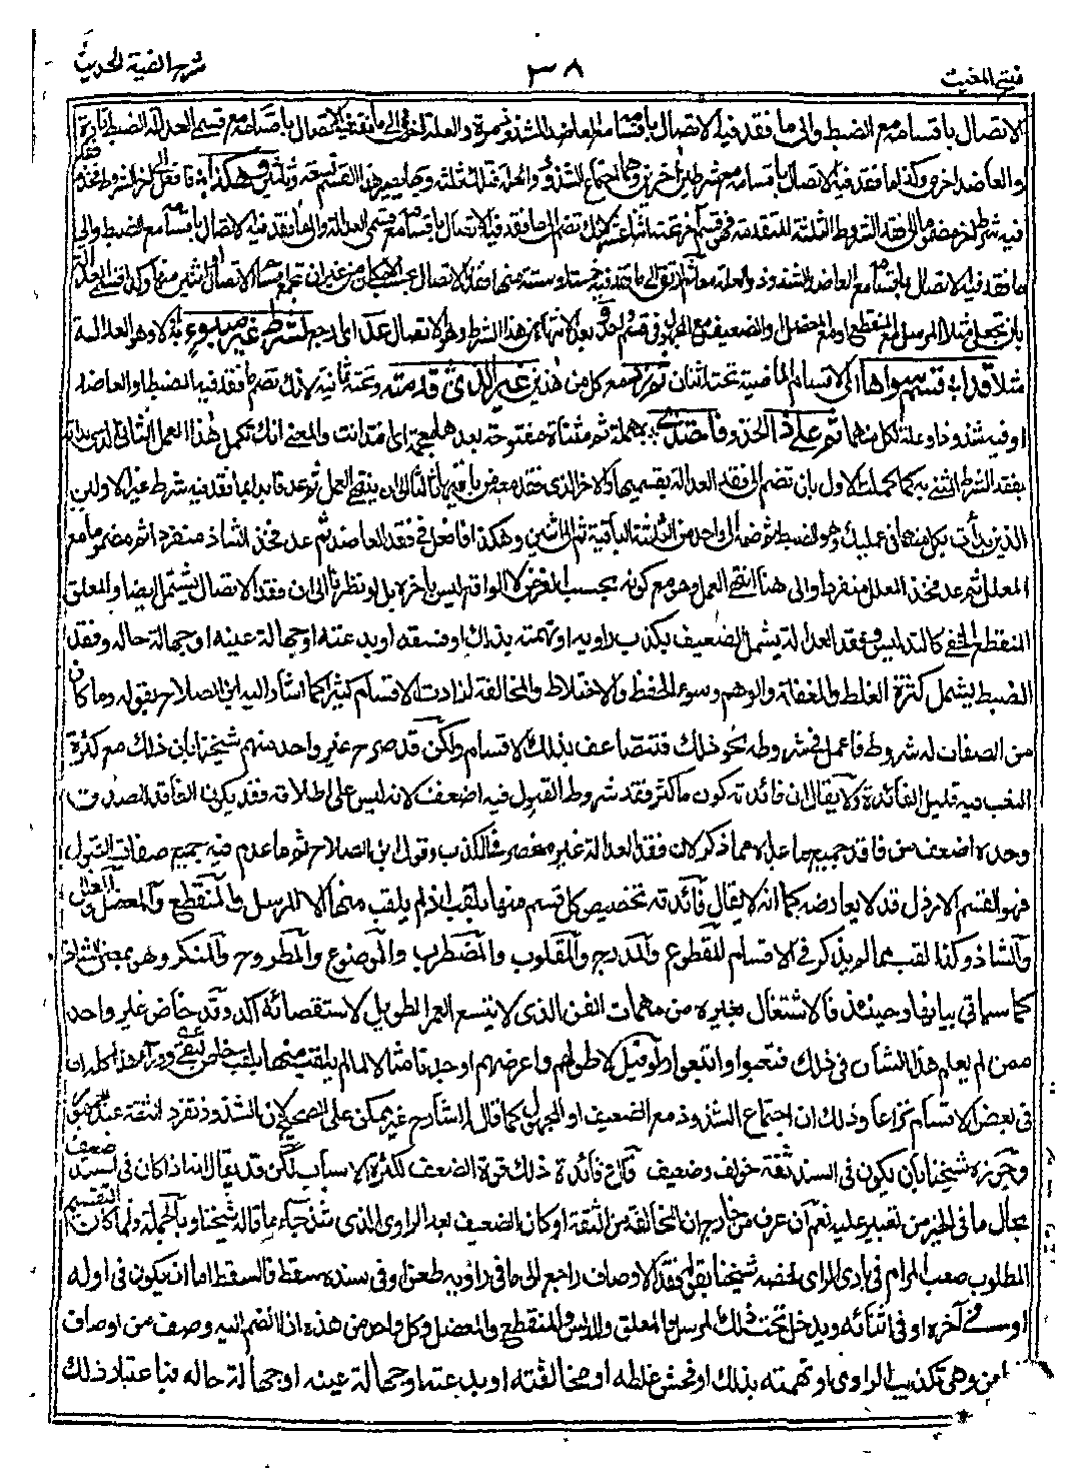 فتح المغيث
٣٨
شرح الفية الحديث
الاتصال باقسامه مع الضبط والى ما فقد فيه الاتصال باقسامه مع العاضد الشذوذ مرة والعلة اخرى الى ما فقد فيه الاتصال باقسامه مع قسمي العدالة الضبط تارة
والعاضد اخرى وكذا ما فقد فيه الاتصال باقسامه مع شرطين آخرين وهما اجتماع الشذوذ والعلة ثلثة وهكذا افعل الى آخر الشروط فخذ ما
فيه شرط آخر مضموما الى فقد الشروط الثلثة المتقدمة فهو قسم آخر تحته اثنا عشر لانك تضم الى ما فقد فيه الاتصال باقسامه مع قسمي العدالة والى ما فقد فيه الاتصال باقسامه مع الضبط والى
ما فقد فيه الاتصال باقسامه مع العاضد الشذوذ والعلة معا ثم ارتق الى ما فقد فيه خمسة او ستة منها فقد الاتصال بحسب الامكان من غير ان تجمع اقسام الاتصال او اثنين منها وكذا قسمي العدالة
بان تجعل مثلا المرسل مع المنقطع او مع المعضل والضعيف مع المجهول في قسم واحد و بعد الانتهاء من هذا الشرط وهو الاتصال عد اي ارجع لشرط غير مبدوء به الاوهو العدالة
مثلا فذا اي قسم سواها اي الاقسام الماضية تحته اثنان ثم زد مع كل من هذين غير الذي قدمته وتحته ثمانية لانك تضم ما فقد فيه الضبط او العاضد
او فيه شذوذ او علة لكل منهما ثم على ذا الحذو فاحتذي بمهملة ثم مثناة مفتوحة بعدها معجمة اي اقتد انت والمعنى انك تكمل هذا العمل الثاني الذي بدأته
بفقد الشرط المثنى به كما كملت الاول بان تضم الى فقد العدالة بقسميها والآخر الذي فقد معه من باقيها ثالثا الى ان ينتهي العمل ثم عد فابدأ بما فقد فيه شرط غير الاولين
الذين بدأت بكل منهما في عمليك وهو الضبط ثم ضمه الى واحد من الثلاثة الباقية ثم الى اثنين وهكذا فافعل في فقد العاضد ثم عد فخذ الشاذ منفردا ثم مضموما مع
المعلل ثم عد فخذ المعلل منفردا والى هنا انتهى العمل وهو مع كونه بحسب الفرض لا الواقع ليس بآخره بل لو نظرنا الى ان فقد الاتصال يشتمل ايضا والمعلق
المنقطع الخفي كالتدليس وفقد العدالة يشمل الضعيف بكذب راويه او تهمته بذلك او فسقه او بدعته او جهالة عينه او جهالة حاله وفقد
الضبط يشمل كثرة الغلط والغفلة والوهم وسوء الحفظ والاختلاط والمخالفة لزادت الاقسام كثيرا كما اشار اليه ابن الصلاح بقوله وما كان
من الصفات له شروط فاعمل في شروطه نحو ذلك فتتضاعف بذلك الاقسام ولكن قد صرح غير واحد منهم شيخنا بان ذلك مع كثرة
التعب فيه قليل الفائدة ولا يقال ان فائدته كون ما كثر فقد شروط القبول فيه اضعف لانه ليس على اطلاقه فقد يكون الفاقد للصدق
وحده اضعف من فاقد جميع ما عداه مما ذكر لان فقد العدالة غير منحصر في الكذب وقول ابن الصلاح ثم ما عدم فيه جميع صفات القبول
فهو القسم الارذل قد لا يعارضه كما انه لا يقال فائدته تخصيص كل قسم منها بلقب اذ لم يلقب منها الا المرسل والمنقطع والمعضل والمعلل
والشاذ وكذا لقب مما لم يذكر في الاقسام المقطوع والمدرج والمقلوب والمضطرب والموضوع والمطروح والمنكر وهو بمعنى الشاذ
كما سياتي بيانها وحينئذ فالاشتغال بغيره من مهمات الفن الذي لا يتسع العمر الطويل لاستقصائه آكد وقد خاض غير واحد
ممن لم يعلم هذا الشأن في ذلك فتعبوا واتعبوا ولو قيل لاطولهم واعرضهم اوجد نا مثالا لما لم يلقب منها بلقب خاص لبقي
في بعض الاقسام نزاعا وذلك ان اجتماع الشذوذ مع الضعيف او المجهول كما قال الشارح غير ممكن على الصحيح لان الشذوذ تفرد الثقة عند الجمهور
وجوزه شيخنا بان يكون في السند ثقة خولف وضعيف قال وفائدة ذلك قوة الضعف لكثرة الاسباب لكن قد يقال انه اذا كان في السند ضعيف
يحال ما في الخبر من تغيير عليه نعم ان عرف من خارج ان المخالفة من الثقة او كان الضعيف بعد الراوي الذي شذ جاء ما قاله شيخنا وبالجملة ولما كان التقسيم
المطلوب صعب المرام في بادي الراي لخصه شيخنا بقوله فقد الاوصاف راجع الى ما في راويه طعن او في سنده سقط فالسقط اما ان يكون في اوله
او في آخره او في اثنائه ويدخل تحت ذلك المرسل والمعلق والمدلس والمنقطع والمعضل وكل واحد من هذه اذا انضم اليه وصف من اوصاف
من وهي تكذيب الراوي او تهمته بذلك او فحش غلطه او مخالفته او بدعته او جهالة عينه او جهالة حاله فباعتبار ذلك